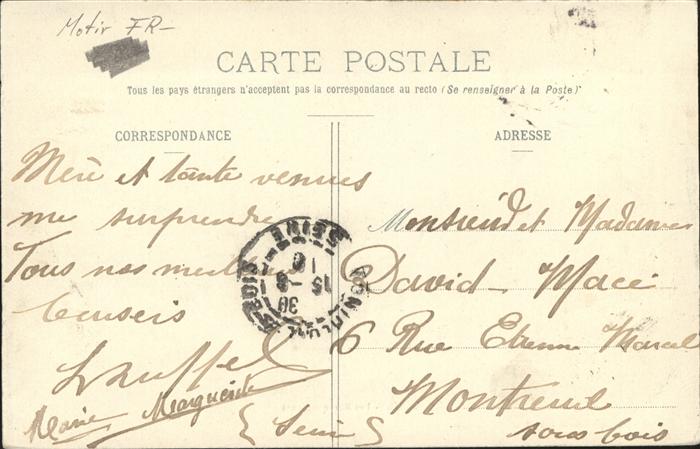 Motiv FR-
CARTE POSTALE
Tous les pays étrangers n'acceptent pas la correspondance au recto (Se renseigner à la Poste)
CORRESPONDANCE
Mère et tante venues
me surprendre
Tous nos meilleurs
baisers
Marie Marguerite
ADRESSE
Monsieur et Madame
David Macé
6 Rue Etienne Marcel
Montreuil
sous bois
(Seine)
SEINE